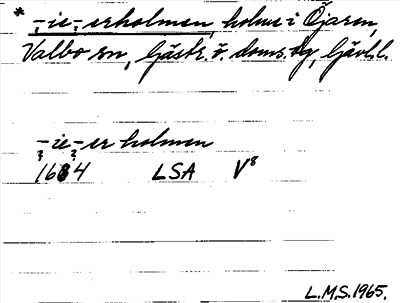 * -ie-erholmen, holme i Öjaren,
Valbo sn, Gästr. ö. doms.bg, Gävl.l.
-ie-er holmen
? ?
1684 LSA V8
L.M.S. 1965.